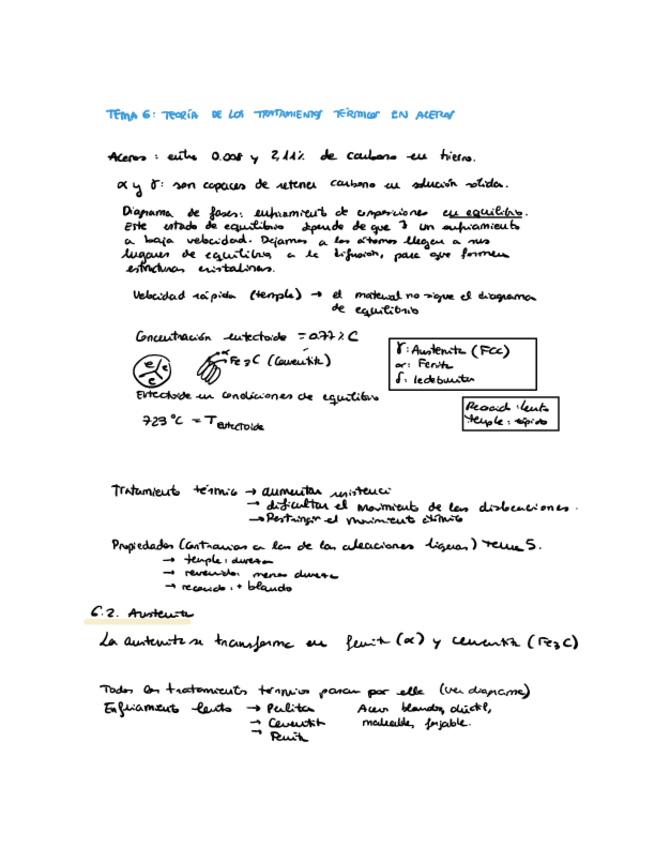 TEMA 6: TEORÍA DE LOS TRATAMIENTOS TÉRMICOS EN ACEROS
Aceros: entre 0.008 y 2,11% de carbono en hierro.
α y γ: son capaces de retener carbono en solución sólida.
Diagrama de fases: enfriamiento de composiciones en equilibrio.
Este estado de equilibrio depende de que ∃ un enfriamiento
a baja velocidad. Dejamos a los átomos llegar a sus
lugares de equilibrio a la difusión, para que formen
estructuras cristalinas.
Velocidad rápida (temple) → el material no sigue el diagrama
de equilibrio
Concentración eutectoide = 0.77% C
γ: Austenita (FCC)
α: Ferrita
δ: ledeburita
α
Fe3C (Cementita)
Eutectoide en condiciones de equilibrio
Recocido: lento
temple: rápido
723 °C = T eutectoide
Tratamiento térmico → aumentar resistencia
→ dificultar el movimiento de las dislocaciones.
→ Restringir el movimiento atómico
Propiedades (contrarias a las de las aleaciones ligeras) Tema 5.
→ temple: dureza
→ revenido: menos dureza
→ recocido: + blando
6.2. Austenita
La austenita se transforma en ferrita (α) y cementita (Fe3C)
Todos los tratamientos térmicos pasan por ella (ver diagrama)
Enfriamiento lento → Perlita Acero blando, dúctil,
→ Cementita maleable, forjable.
→ Ferrita